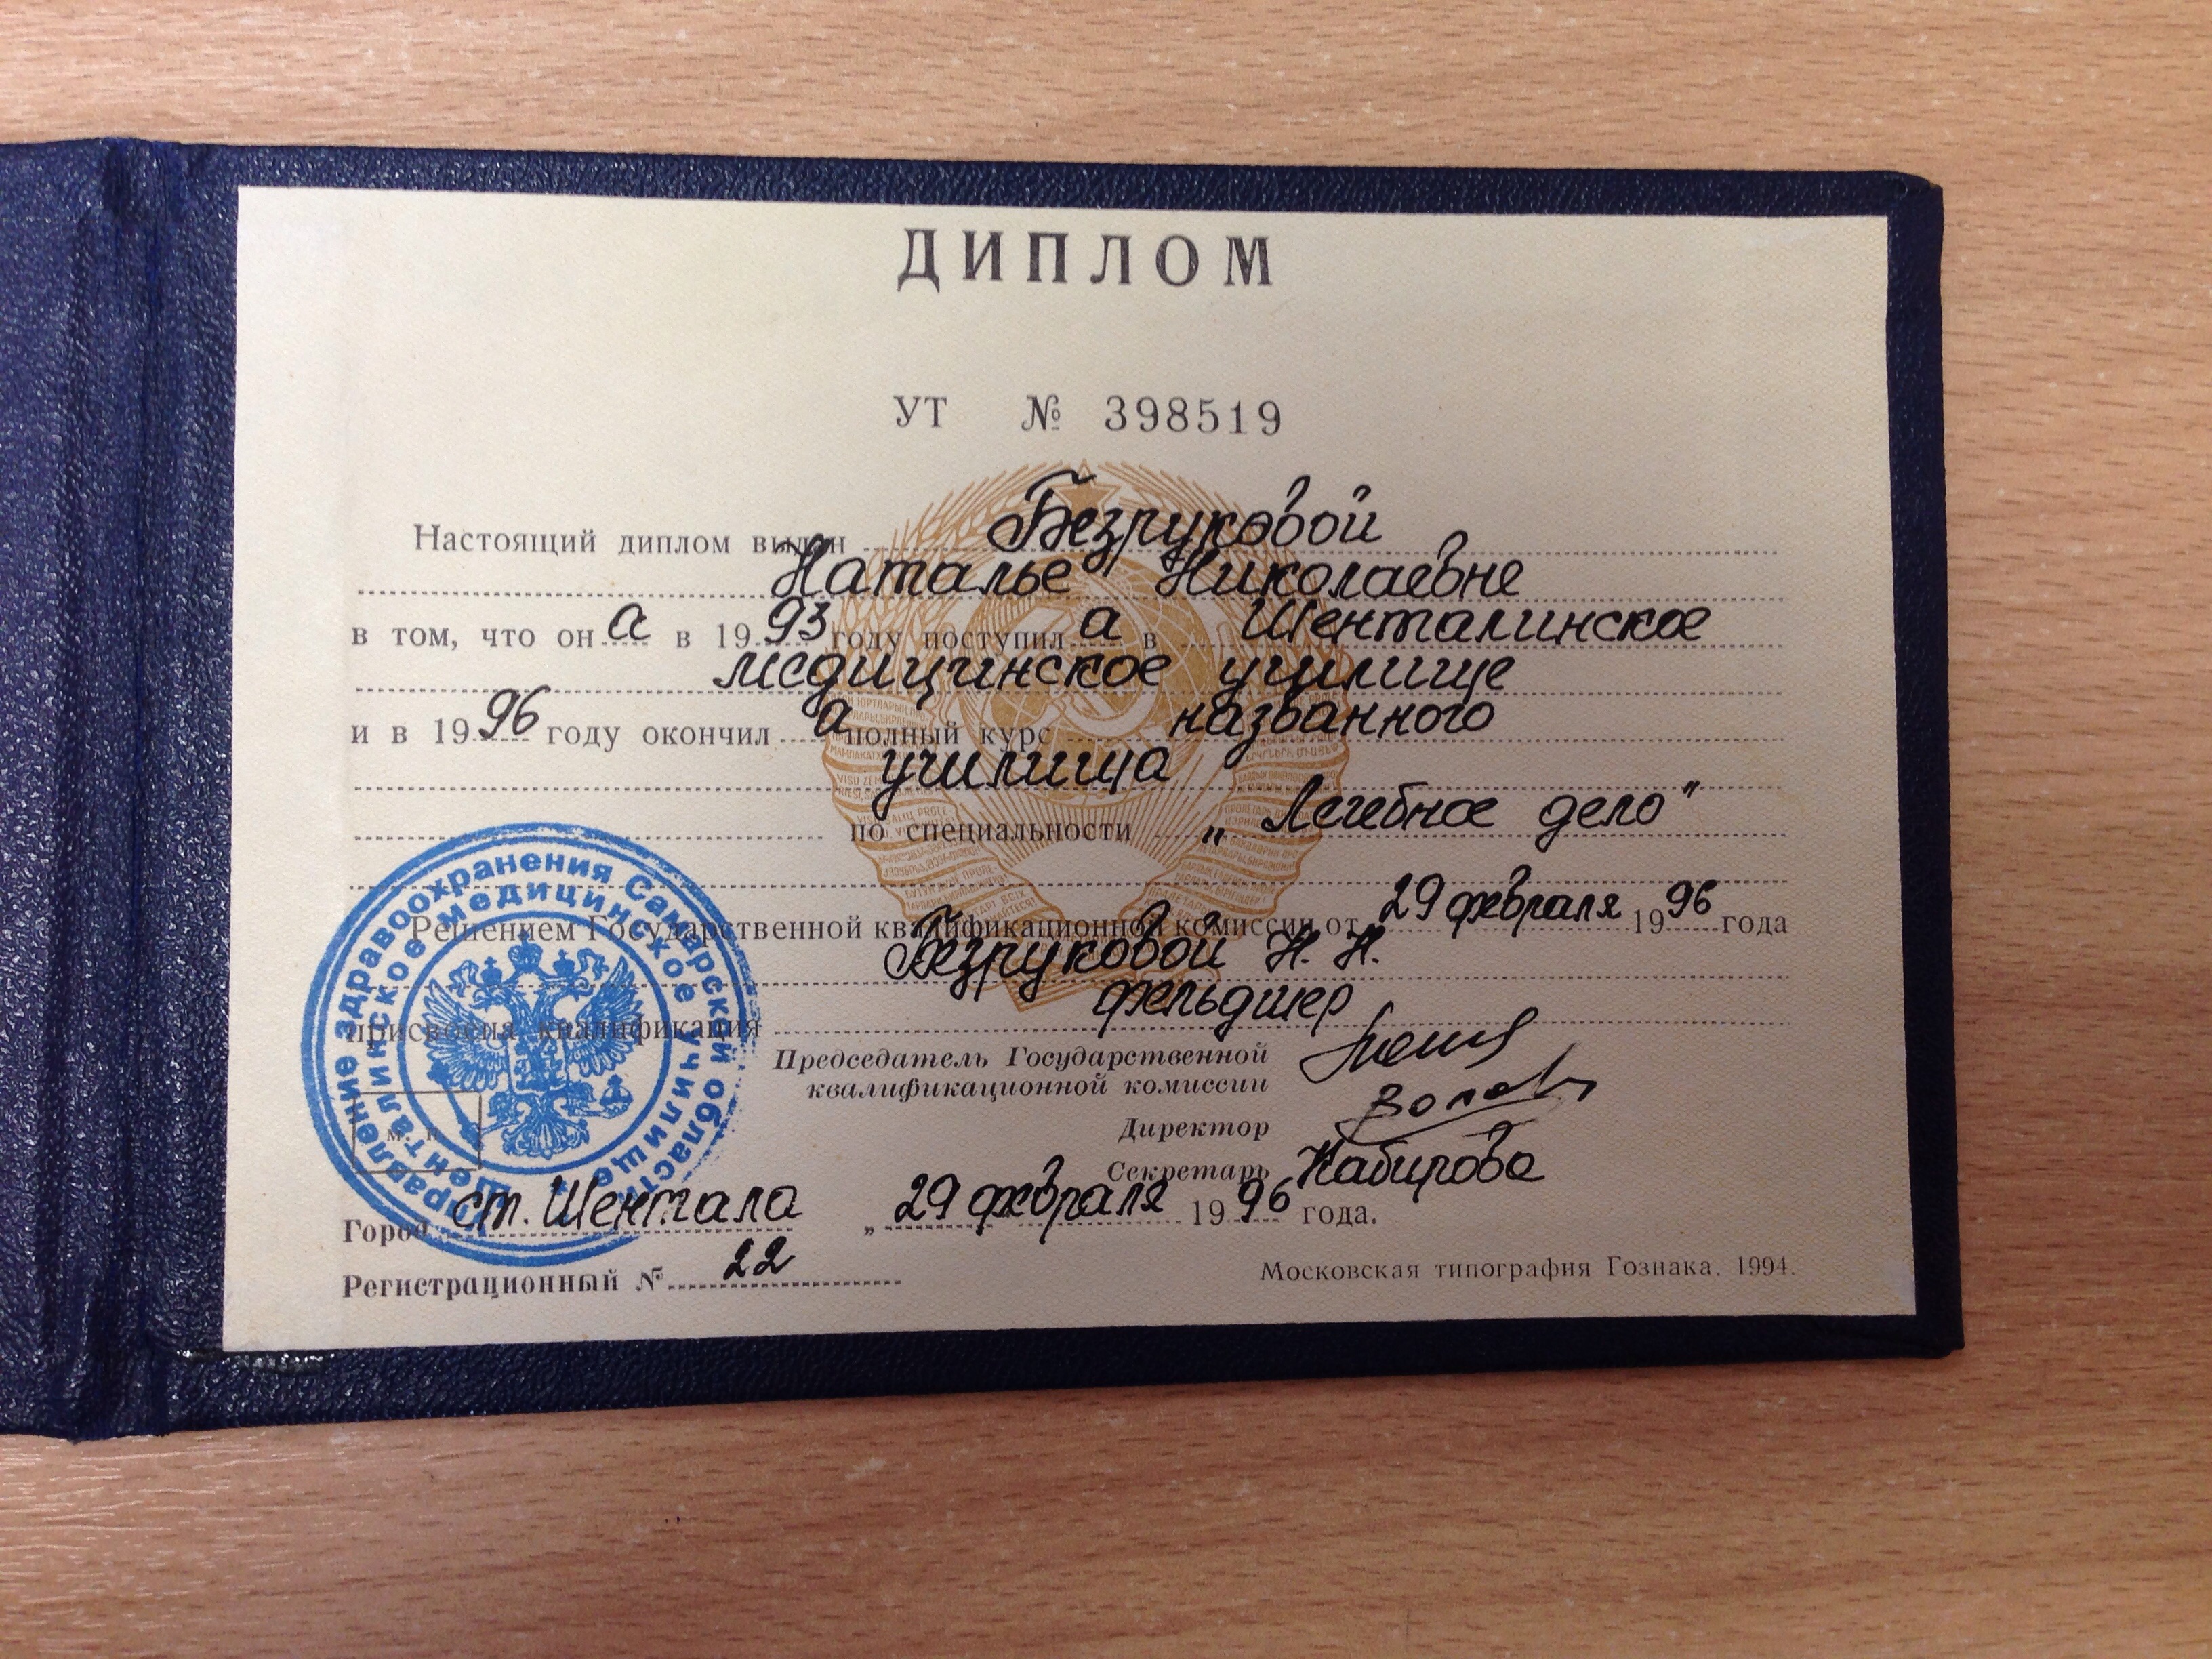 ДИПЛОМ
УТ № 398519
Настоящий диплом выдан Безруковой
Наталье Николаевне
в том, что он а в 1993 году поступил а в Шенталинское
медицинское училище
и в 1996 году окончил а полный курс названного
училища
по специальности „Лечебное дело"
Решением Государственной квалификационной комиссии от 29 февраля 1996 года
Безруковой Н. Н.
присвоена квалификация фельдшер
Председатель Государственной
квалификационной комиссии
Директор
Секретарь Набирова
Город ст. Шентала „ 29 февраля 1996 года.
Регистрационный № 22
Московская типография Гознака. 1994.
Управление здравоохранения Самарской области
Шенталинское медицинское училище
м. п.